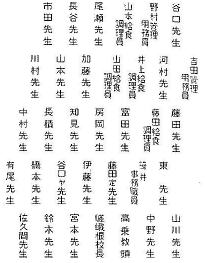 谷口先生
野村管理事務員
山本給食調理員
尾瀬先生
長谷先生
市田先生
吉田管理事務員
河村先生
井上給食調理員
山田給食調理員
加藤先生
山本先生
川村先生
藤田先生
藤田給食調理員
富田先生
房岡先生
知見先生
長積先生
中村先生
東 先生
事務職員
藤田定先生
伊藤先生
谷口ヤ先生
橋本先生
有尾先生
山川先生
中野先生
高乗教頭
嵯峨根校長
宮本先生
鈴木先生
佐久間先生